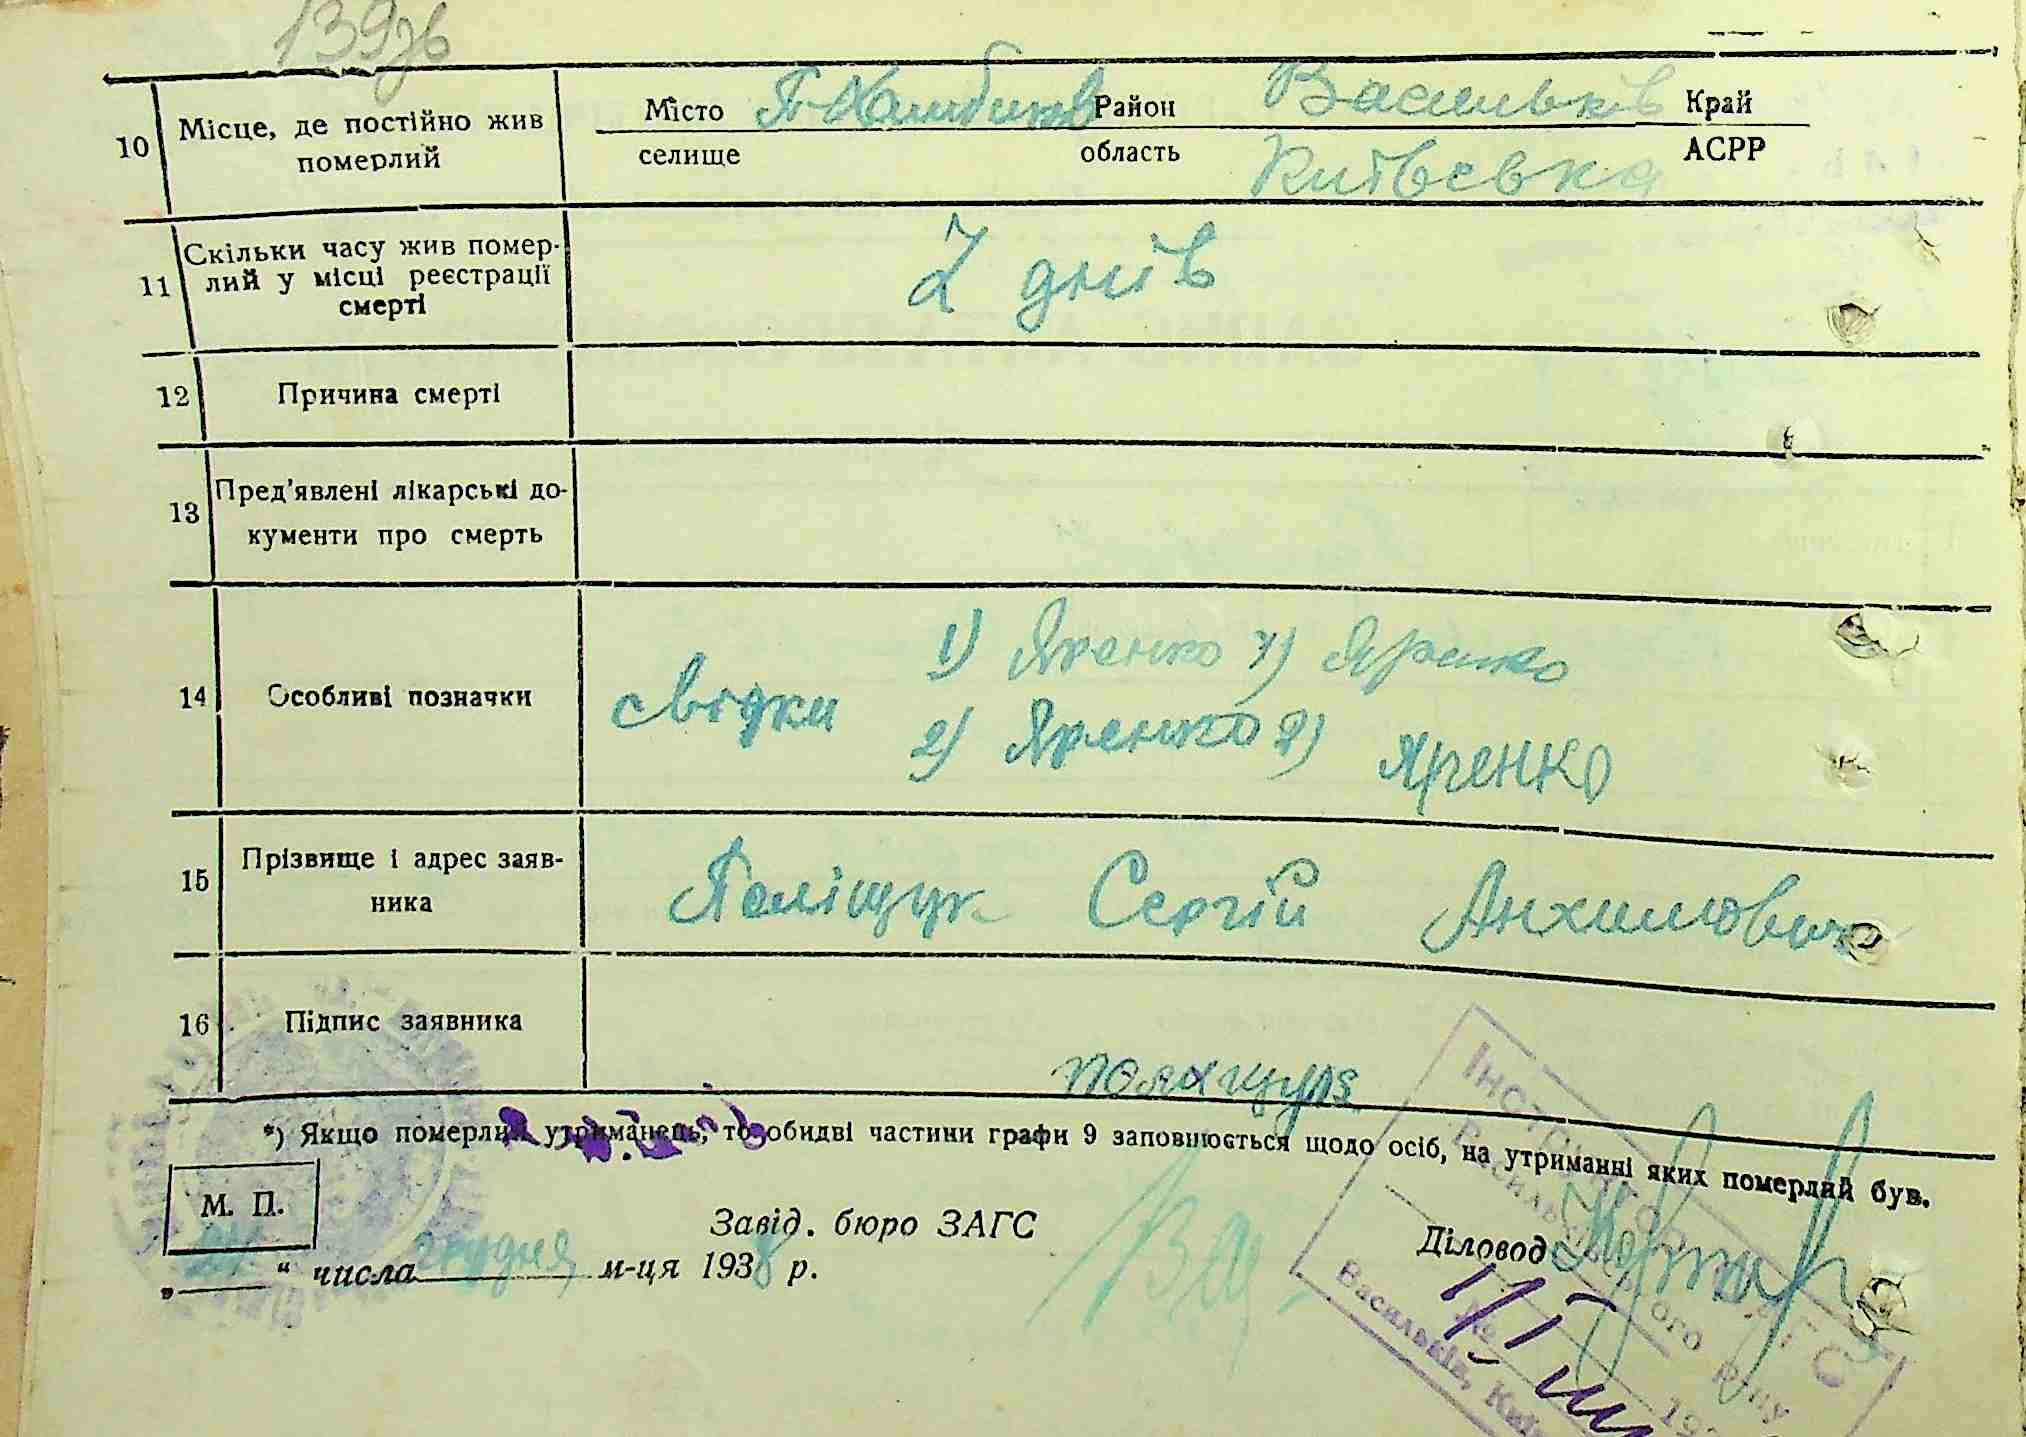 139зв
10 Місце, де постійно жив померлий
Місто Район Васильків Край
селище область Київська АСРР
11 Скільки часу жив помер-
лий у місці реєстрації
смерті
7 днів
12 Причина смерті
13 Пред'явлені лікарські до-
кументи про смерть
14 Особливі позначки
свідки 1) Яренко 1) Яренко
2) Яренко 2) Яренко
15 Прізвище і адрес заяв-
ника
Поліщук Сергій Анхимович
16 Підпис заявника
*) Якщо померлий утриманець, то обидві частини графи 9 заповнюється щодо осіб, на утриманні яких померлий був.
М. П.
Завід. бюро ЗАГС
Діловод
„ “ числа грудня м-ця 1938 р.
Інспектор ЗАГС
Васильківського Р-ну
№ 193
Васильків, Київ